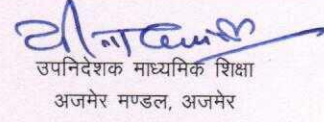 उपनिदेशक माध्यमिक शिक्षा
अजमेर मण्डल, अजमेर